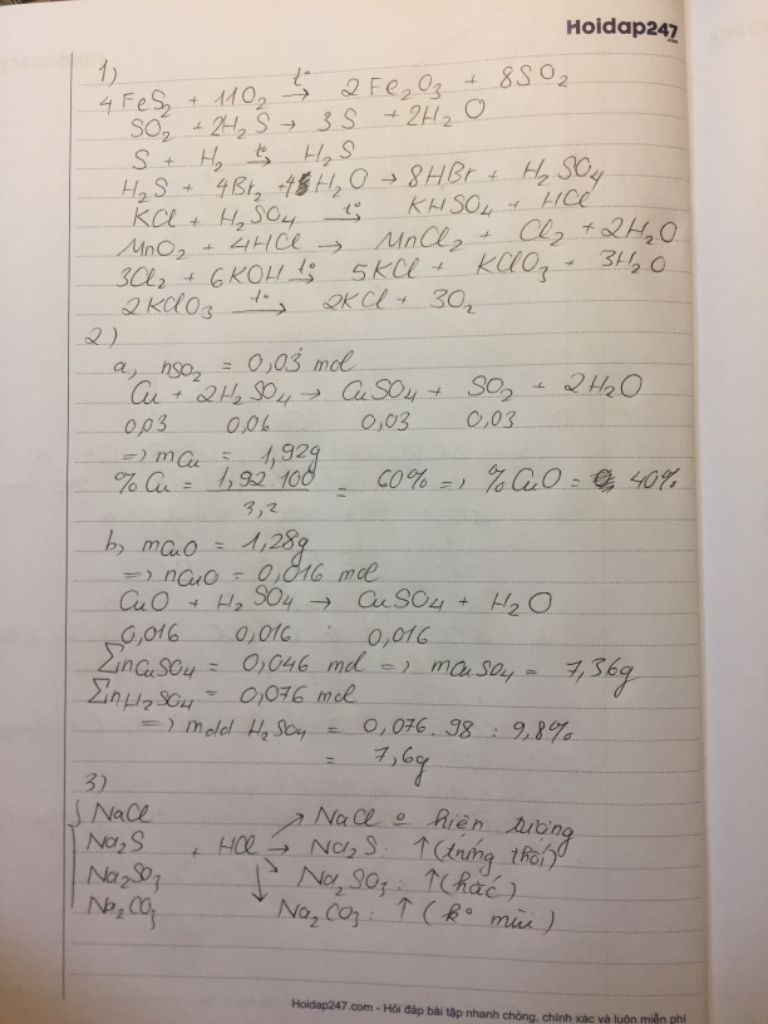 Hoidap247
.com
1)
4FeS₂ + 11O₂ →(t°) 2Fe₂O₃ + 8SO₂
SO₂ + 2H₂S → 3S + 2H₂O
S + H₂ →(t°) H₂S
H₂S + 4Br₂ + 4H₂O → 8HBr + H₂SO₄
KCl + H₂SO₄ →(t°) KHSO₄ + HCl
MnO₂ + 4HCl → MnCl₂ + Cl₂ + 2H₂O
3Cl₂ + 6KOH →(t°) 5KCl + KClO₃ + 3H₂O
2KClO₃ →(t°) 2KCl + 3O₂
2)
a, nSO₂ = 0,03 mol
Cu + 2H₂SO₄ → CuSO₄ + SO₂ + 2H₂O
0,03 0,06 0,03 0,03
=> mCu = 1,92g
%Cu = 1,92.100 / 3,2 = 60% => %CuO = 40%
b, mCuO = 1,28g
=> nCuO = 0,016 mol
CuO + H₂SO₄ → CuSO₄ + H₂O
0,016 0,016 0,016
ΣnCuSO₄ = 0,046 mol => mCuSO₄ = 7,36g
ΣnH₂SO₄ = 0,076 mol
=> mdd H₂SO₄ = 0,076.98 : 9,8%
= 7,6g
3)
NaCl ↗ NaCl o hiện tượng
Na₂S + HCl → Na₂S: ↑ (trứng thối)
Na₂SO₃ ↘ Na₂SO₃: ↑ (hắc)
Na₂CO₃ ↓ Na₂CO₃: ↑ (k° mùi)
Hoidap247.com - Hỏi đáp bài tập nhanh chóng, chính xác và luôn miễn phí